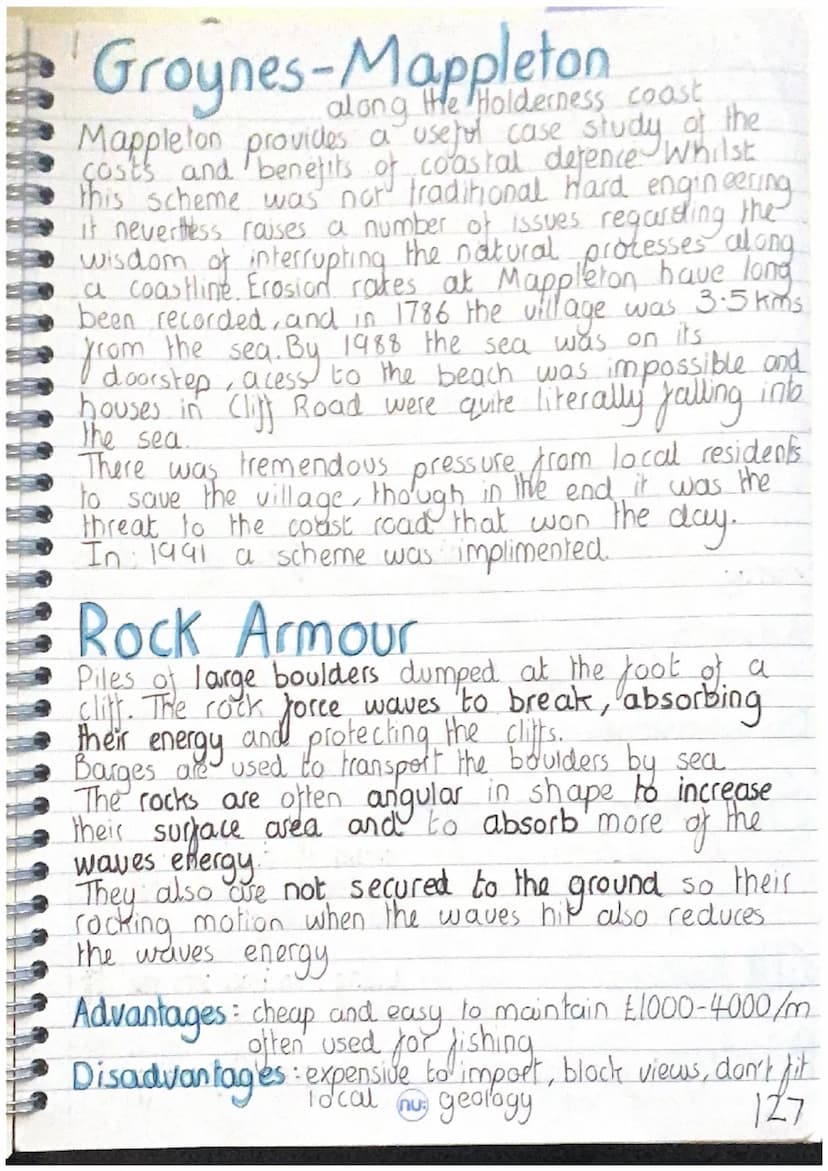 Groynes-Mappleton
along the Holderness coast
Mappleton provides a useful case study of the
costs and benefits of coastal defence Whilst
this scheme was not traditional hard engineering
it nevertless raises a number of issues regarding the
wisdom of interrupting the natural processes along
a coastline. Erosion rates at Mappleton have long
been recorded, and in 1786 the village was 3.5kms
from the sea. By 1988 the sea was on its
doorstep, acess to the beach was impossible and
houses in Cliff Road were quite literally falling into
the sea.
There was tremendous pressure from local residents
to save the village, though in the end it was the
threat to the coast road that won the day.
In 1991 a scheme was implimented.
Rock Armour
Piles of large boulders dumped at the foot of a
cliff. The rock force waves to break, absorbing
their energy and protecting the cliffs.
Barges are used to transport the boulders by sea
The rocks are often angular in shape to increase
their surface area and to absorb more of the
waves energy.
They also are not secured to the ground so their
rocking motion when the waves hit also reduces
the waves energy
Advantages: cheap and easy to maintain £1000-4000/m
often used for fishing
Disadvantages: expensive to import, block views, don't fit
local nu: geology
127